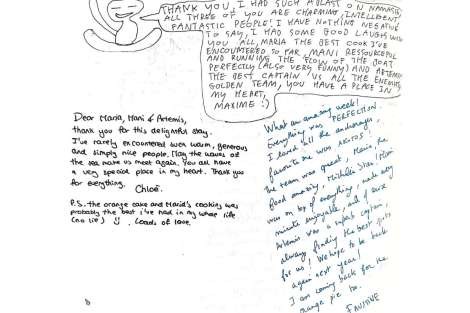 THANK YOU, I HAD SUCH A BLAST ON NAMASTE
ALL THREE OF YOU ARE CHARMING, INTELLIGENT
FANTASTIC PEOPLE! I HAVE NOTHING NEGATIVE
TO SAY, I HAD SOME GOOD LAUGHS WITH
YOU ALL, MARIA THE BEST COOK I'VE
ENCOUNTERED SO FAR, MANI RESSOURCEFUL
AND RUNNING THE FLOW OF THE BOAT
PERFECTLY (ALSO VERY FUNNY) AND ARTEMIS
THE BEST CAPTAIN VS ALL THE ENEMIES
GOLDEN TEAM, YOU HAVE A PLACE IN
MY HEART,
MAXIME :)
Dear Maria, Mani & Artemis,
thank you for this delightful stay.
I've rarely encountered such warm, generous
and simply nice people. May the waves of
the sea make us meet again. You all have
a very special place in my heart. Thank you
for everything.
Chloé.
P.S. the orange cake and Maria's cooking was
probably the best I've had in my whole life
(no lie) Loads of love.
What an amazing week!
Everything was PERFECTION.
I loved all the anchorages,
favourite one was
the team was great, Maria, the
food amazing,
was on top of everything, made every
minute enjoyable, and of course
Artemis was a superb captain,
always finding the best spots
for us! We hope to be back
again next year!
I am coming back for the
orange pie too.
FAUSTINE